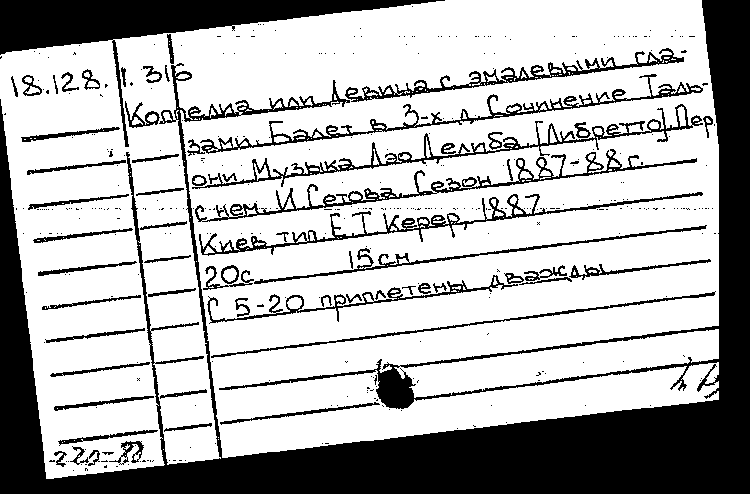 18.128.1.316
Коппелиа или Девица с эмалевыми гла-
зами. Балет в 3-х д. Сочинение Таль-
они Музыка Лэо Делиба. [Либретто]. Пер
с нем. И. Сетова. Сезон 1887-88 г.
Киев, тип. Е.Т Керер, 1887.
20с. 15см
С 5-20 приплетены дважды
220-88